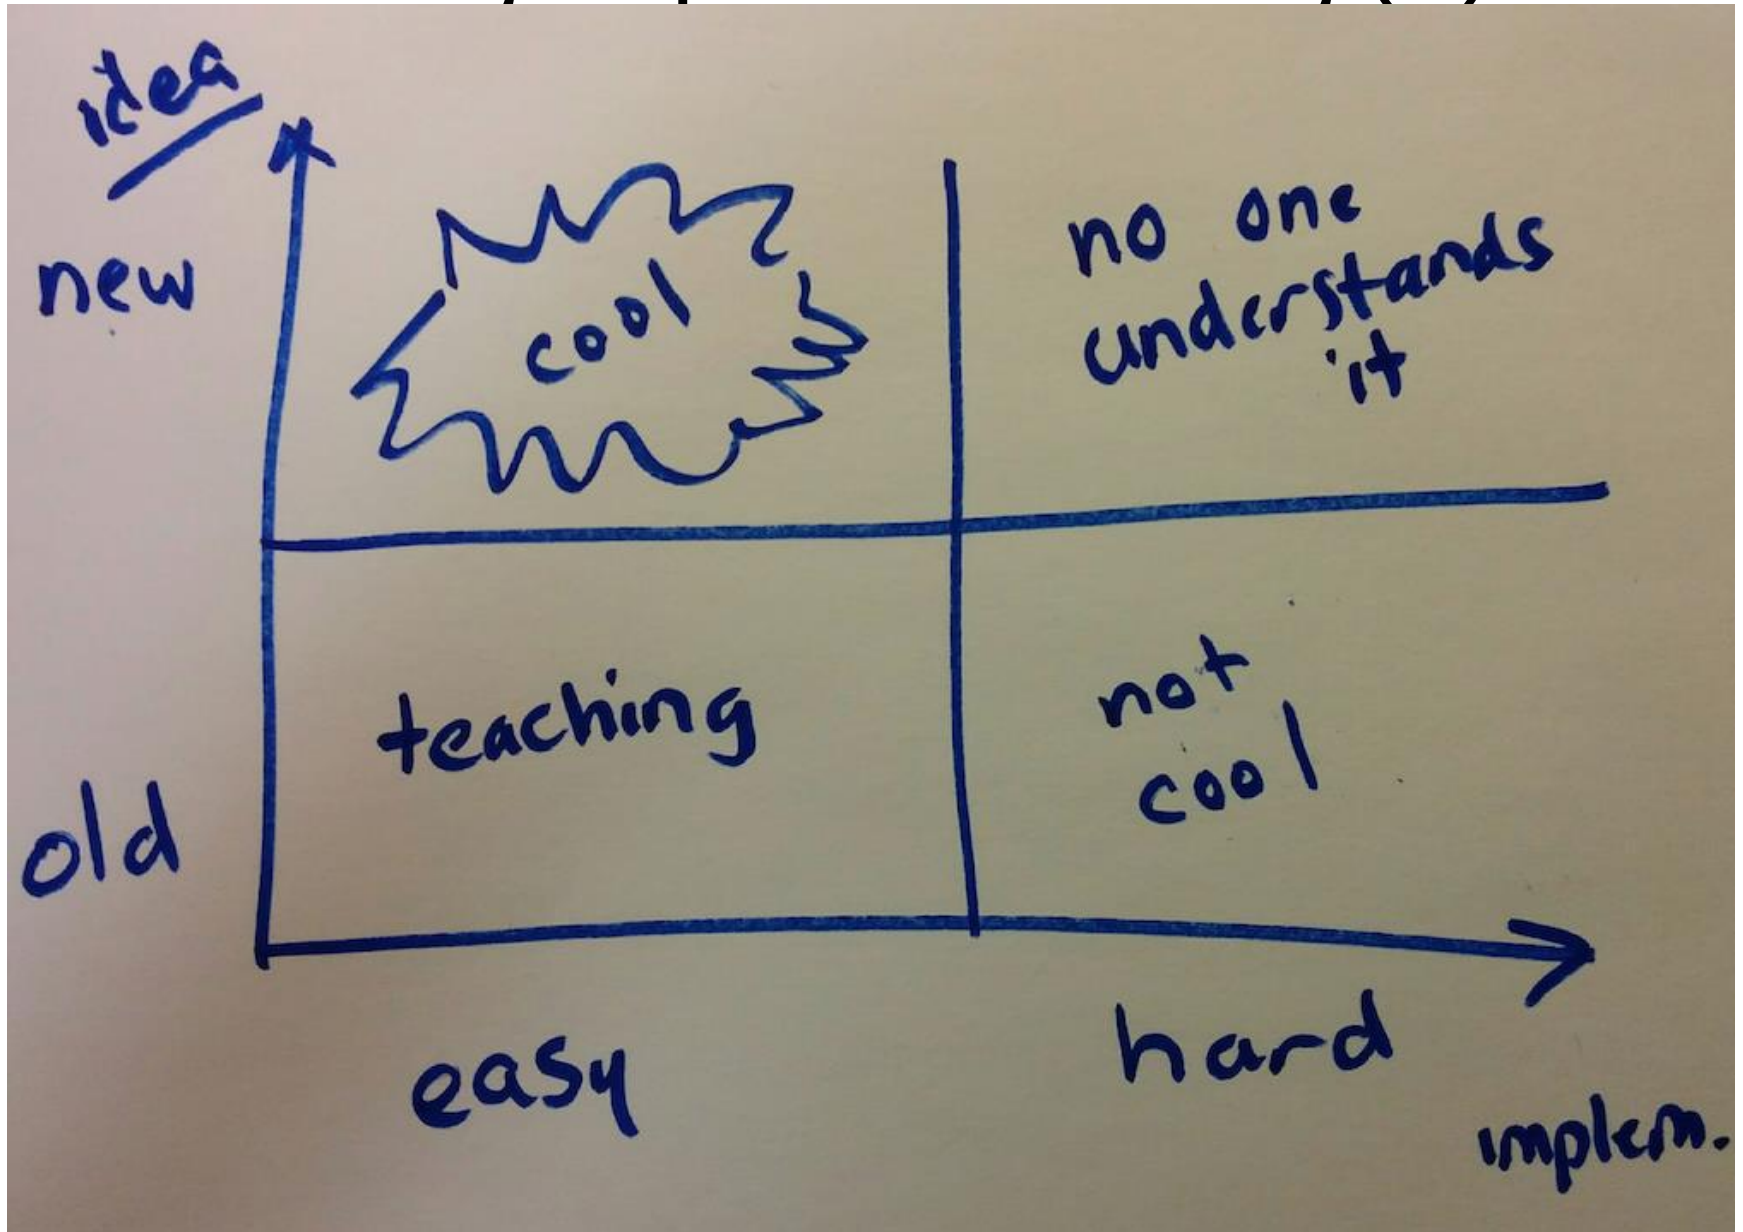 idea
new
cool
no one
understands
it
old
teaching
not
cool
easy
hard
implem.